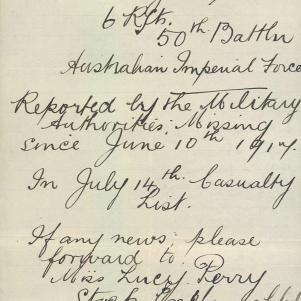 6 Rfts.
50th Battln
Australian Imperial Force
Reported by the Military
Authorities, Missing
since June 10th 1917.
In July 14th Casualty
List.
If any news please
forward to
Miss Lucy Perry